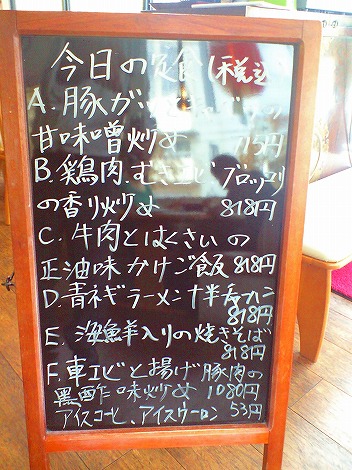 今日の定食(税込)
A. 豚が
甘味噌炒め 715円
B. 鶏肉.むきエビ ブロッコリ
の香り炒め 818円
C. 牛肉とはくさいの
正油味かけご飯 818円
D. 青ネギラーメン+半チャーハン
818円
E. 海鮮入りの焼きそば
818円
F. 車エビと揚げ豚肉の
黒酢味炒め 1080円
アイスコーヒ、アイスウーロン 53円